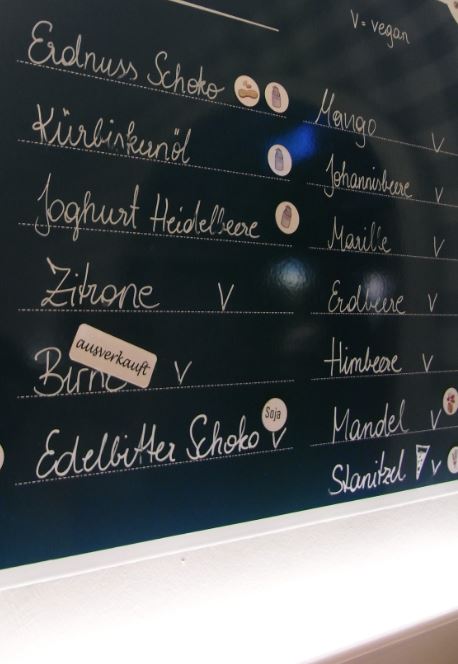 V = vegan
Erdnuss Schoko
Kürbiskernöl
Joghurt Heidelbeere
Zitrone V
ausverkauft
Birne V
Soja
Edelbitter Schoko V
Mango V
Johannisbeere V
Marille V
Erdbeere V
Himbeere V
Mandel V
Stanitzel V